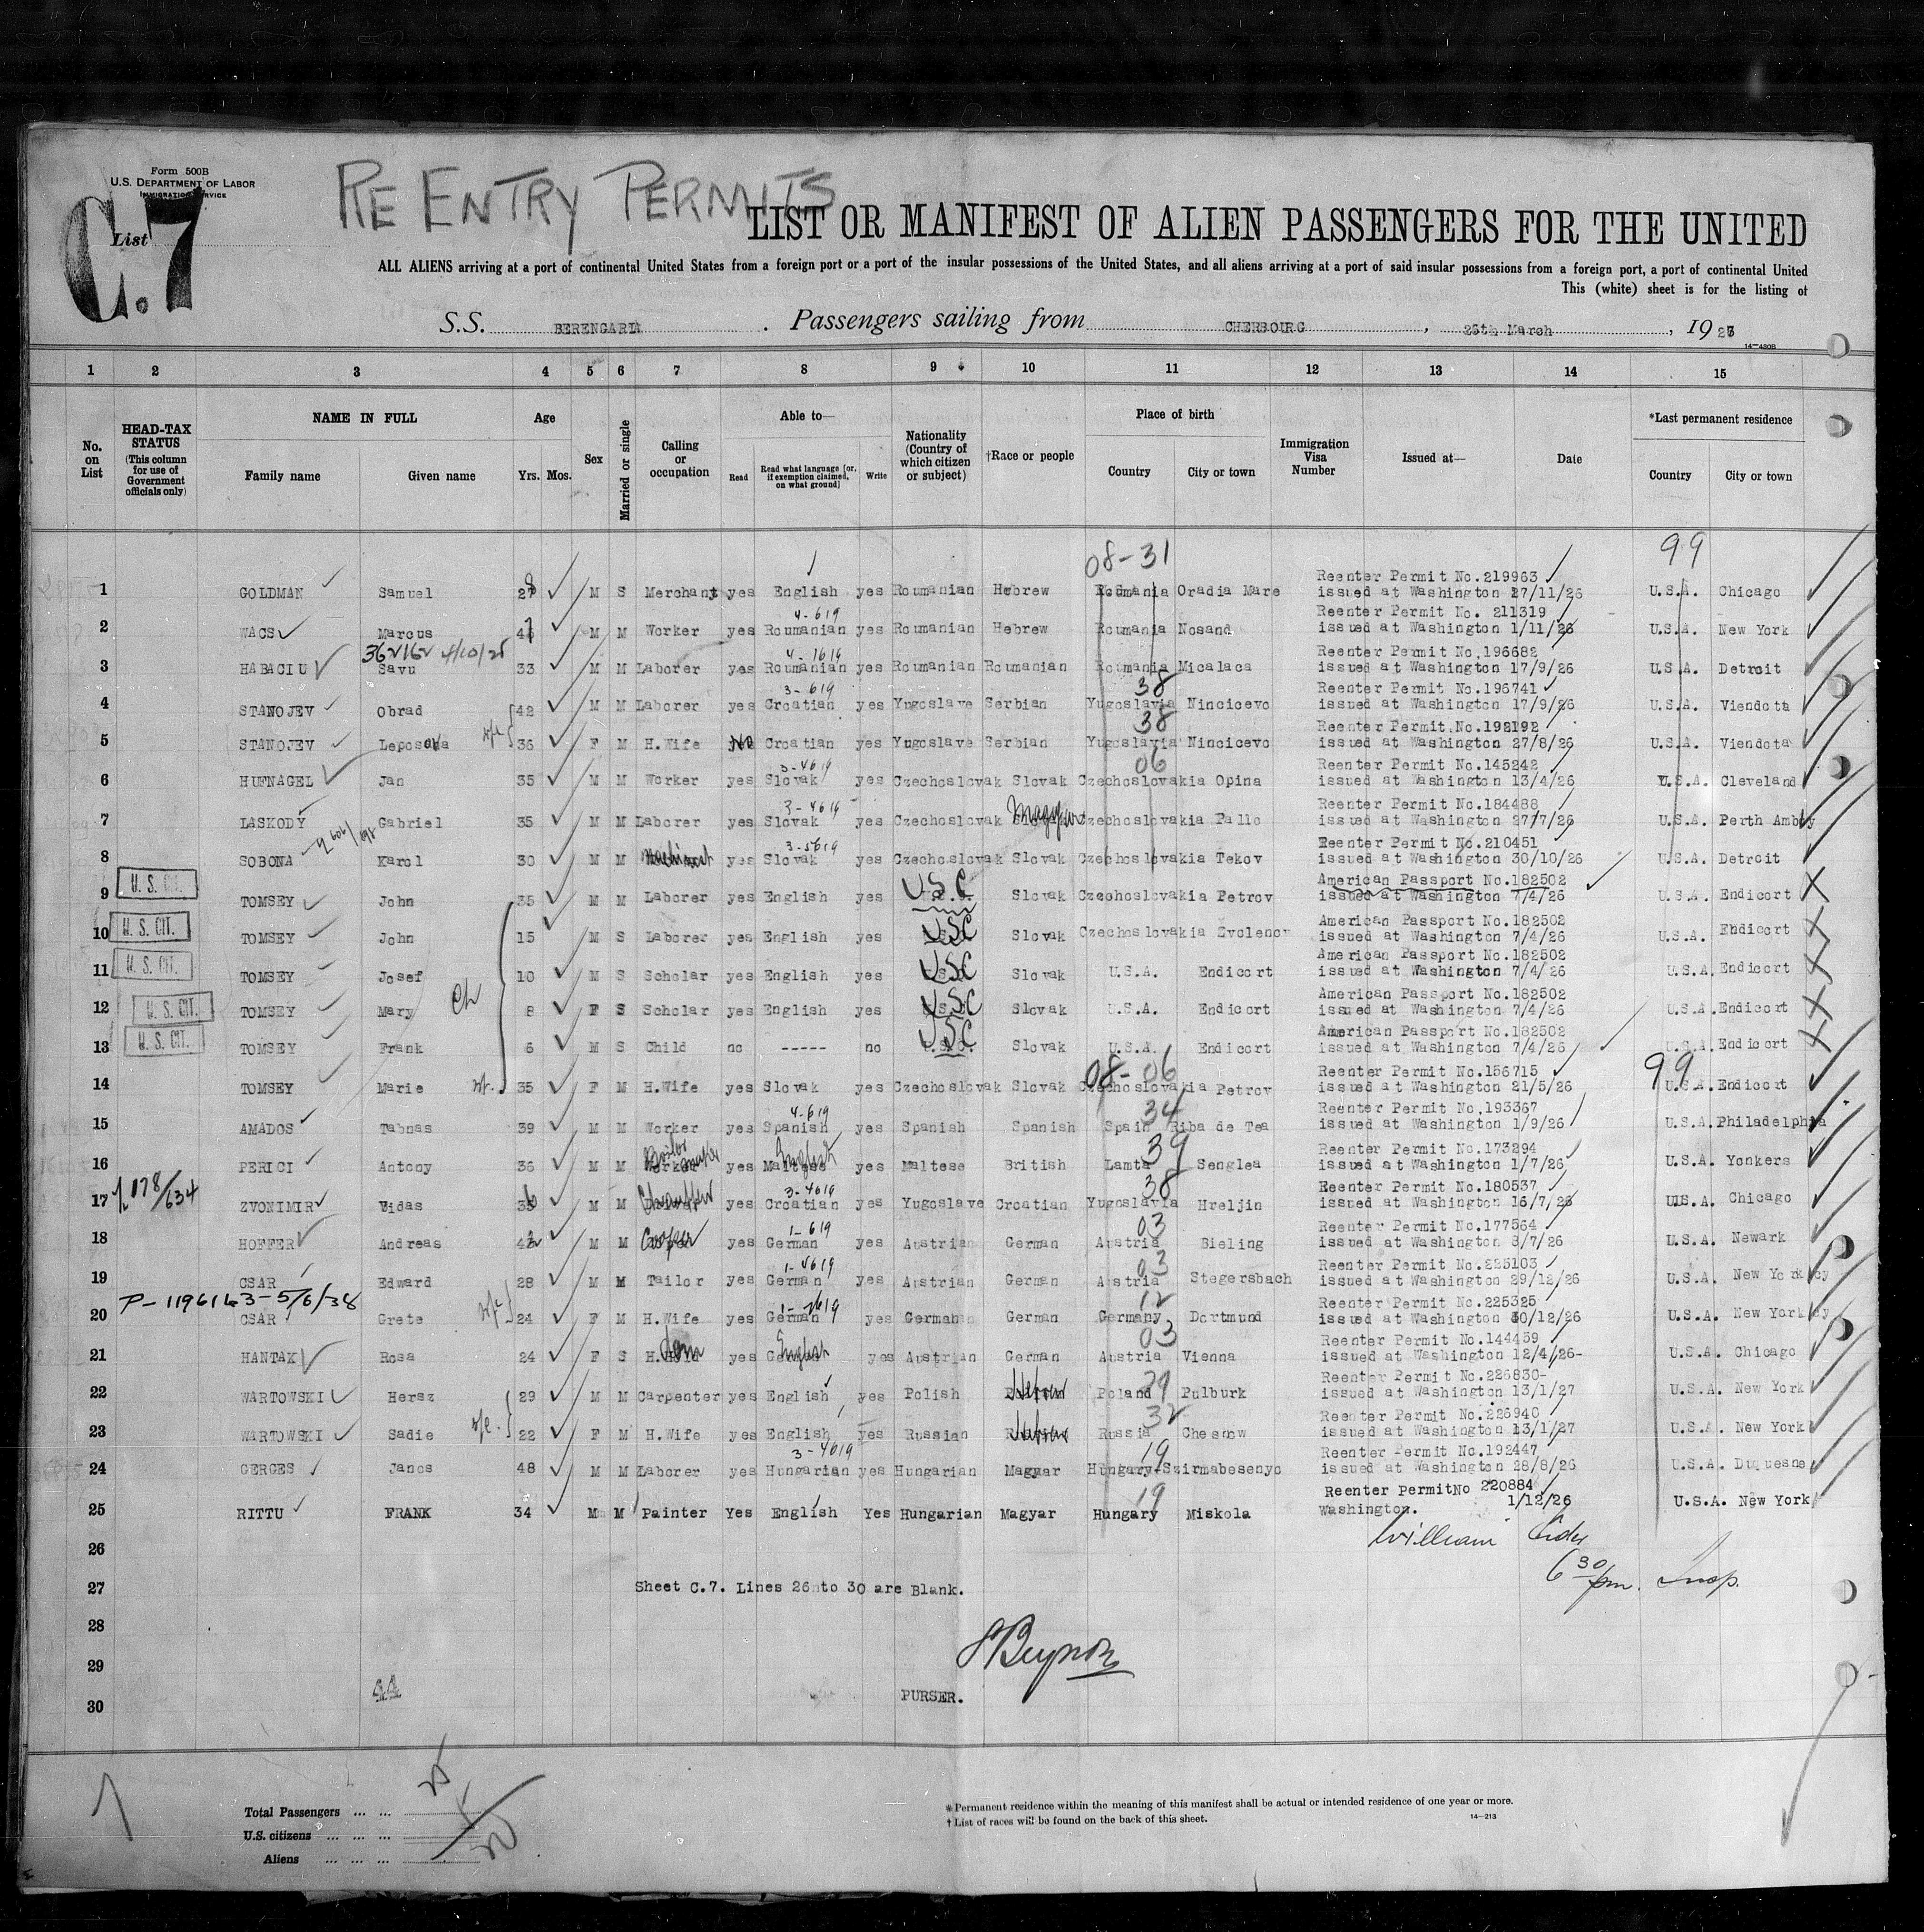 Form 500B
U.S. DEPARTMENT OF LABOR
IMMIGRATION SERVICE
RE ENTRY PERMITS
List C.7
LIST OR MANIFEST OF ALIEN PASSENGERS FOR THE UNITED
ALL ALIENS arriving at a port of continental United States from a foreign port or a port of the insular possessions of the United States, and all aliens arriving at a port of said insular possessions from a foreign port, a port of continental United
This (white) sheet is for the listing of
S.S. BERENGARIA. Passengers sailing from CHERBOURG, 25th March, 1927
14-430B
1 2 3 4 5 6 7 8 9 10 11 12 13 14 15
No. on List
HEAD-TAX STATUS (This column for use of Government officials only)
NAME IN FULL Family name Given name
Age Yrs. Mos.
Sex
Married or single
Calling or occupation
Able to— Read Read what language (or, if exemption claimed, on what ground) Write
Nationality (Country of which citizen or subject)
†Race or people
Place of birth Country City or town
Immigration Visa Number
Issued at—
Date
*Last permanent residence Country City or town
08-31 99
1 GOLDMAN Samuel M S Merchant yes English yes Roumanian Hebrew Roumania Oradia Mare Reenter Permit No.219963 issued at Washington 27/11/26 U.S.A. Chicago
4-619
2 WACS Marcus M M Worker yes Roumanian yes Roumanian Hebrew Roumania Nosand Reenter Permit No. 211319 issued at Washington 1/11/26 U.S.A. New York
4-1619
3 HABACIU Savu 33 M M Laborer yes Roumanian yes Roumanian Roumanian Roumania Micalaca Reenter Permit No.196682 issued at Washington 17/9/26 U.S.A. Detroit
3-619 38
4 STANOJEV Obrad 42 M M Laborer yes Croatian yes Yugoslave Serbian Yugoslavia Nincicevo Reenter Permit No.196741 issued at Washington 17/9/26 U.S.A. Viendota
38
5 STANOJEV Leposava 36 F M H.Wife No Croatian yes Yugoslave Serbian Yugoslavia Nincicevo Reenter Permit No.192192 issued at Washington 27/8/26 U.S.A. Viendota
3-4619 06
6 HUFNAGEL Jan 35 M M Worker yes Slovak yes Czechoslovak Slovak Czechoslovakia Opina Reenter Permit No.145242 issued at Washington 13/4/26 U.S.A. Cleveland
3-4619
7 LASKODY Gabriel 35 M M Laborer yes Slovak yes Czechoslovak Magyar Czechoslovakia Pallo Reenter Permit No.184488 issued at Washington 27/7/26 U.S.A. Perth Amboy
3-5619
8 SOBONA Karol 30 M M Machinist yes Slovak yes Czechoslovak Slovak Czechoslovakia Tekov Reenter Permit No.210451 issued at Washington 30/10/26 U.S.A. Detroit
U.S. CIT.
9 TOMSEY John 35 M M Laborer yes English yes USC Slovak Czechoslovakia Petrov American Passport No.182502 issued at Washington 7/4/26 U.S.A. Endicort
U.S. CIT.
10 TOMSEY John 15 M S Laborer yes English yes USC Slovak Czechoslovakia Zvolenor American Passport No.182502 issued at Washington 7/4/26 U.S.A. Endicort
U.S. CIT.
11 TOMSEY Josef 10 M S Scholar yes English yes USC Slovak U.S.A. Endicort American Passport No.182502 issued at Washington 7/4/26 U.S.A. Endicort
U.S. CIT.
12 TOMSEY Mary Ch 8 F S Scholar yes English yes USC Slovak U.S.A. Endicort American Passport No.182502 issued at Washington 7/4/26 U.S.A. Endicort
U.S. CIT.
13 TOMSEY Frank 6 M S Child no ----- no USC Slovak U.S.A. Endicort American Passport No.182502 issued at Washington 7/4/26 U.S.A. Endicort
08-06 99
14 TOMSEY Marie 35 F M H.Wife yes Slovak yes Czechoslovak Slovak Czechoslovakia Petrov Reenter Permit No.156715 issued at Washington 21/5/26 U.S.A. Endicort
4-619 34
15 AMADOS Tabnas 39 M M Worker yes Spanish yes Spanish Spanish Spain Riba de Tea Reenter Permit No.193367 issued at Washington 1/9/26 U.S.A. Philadelphia
39
16 PERICI Antony 36 M M yes Maltese English yes Maltese British Lamta Senglea Reenter Permit No.173294 issued at Washington 1/7/26 U.S.A. Yonkers
3-4619 38
17 178/634 ZVONIMIR Vidas M M Chauffeur yes Croatian yes Yugoslave Croatian Yugoslavia Hreljin Reenter Permit No.180537 issued at Washington 16/7/26 U.S.A. Chicago
1-619 03
18 HOFFER Andreas 42 M M Cooper yes German yes Austrian German Austria Bieling Reenter Permit No.177564 issued at Washington 8/7/26 U.S.A. Newark
1-4619 03
19 CSAR Edward 28 M M Tailor yes German yes Austrian German Austria Stegersbach Reenter Permit No.225103 issued at Washington 29/12/26 U.S.A. New York cy
12
20 CSAR Grete 24 F M H.Wife yes German yes German German Germany Dortmund Reenter Permit No.225325 issued at Washington 30/12/26 U.S.A. New York cy
03
21 HANTAK Rosa 24 F S Dom yes English yes Austrian German Austria Vienna Reenter Permit No.144459 issued at Washington 12/4/26- U.S.A. Chicago
29
22 WARTOWSKI Hersz 29 M M Carpenter yes English yes Polish Hebrew Poland Pulburk Reenter Permit No.226830- issued at Washington 13/1/27 U.S.A. New York
32
23 WARTOWSKI Sadie 22 F M H.Wife yes English yes Russian Hebrew Russia Chesnow Reenter Permit No.226940 issued at Washington 13/1/27 U.S.A. New York
3-4619 19
24 GERGES Janos 48 M M Laborer yes Hungarian yes Hungarian Magyar Hungary-Szirmabesenyo Reenter Permit No.192447 issued at Washington 28/8/26 U.S.A. Duquesne
19
25 RITTU FRANK 34 M M Painter Yes English Yes Hungarian Magyar Hungary Miskola Reenter PermitNo 220884 Washington. 1/12/26 U.S.A. New York
26 William
6 30 pm. Insp.
27 Sheet C.7. Lines 26 to 30 are Blank.
28
29
30 44 PURSER.
Total Passengers ... ...
U.S. citizens ... ... ...
Aliens ... ... ...
* Permanent residence within the meaning of this manifest shall be actual or intended residence of one year or more.
† List of races will be found on the back of this sheet.
14-213